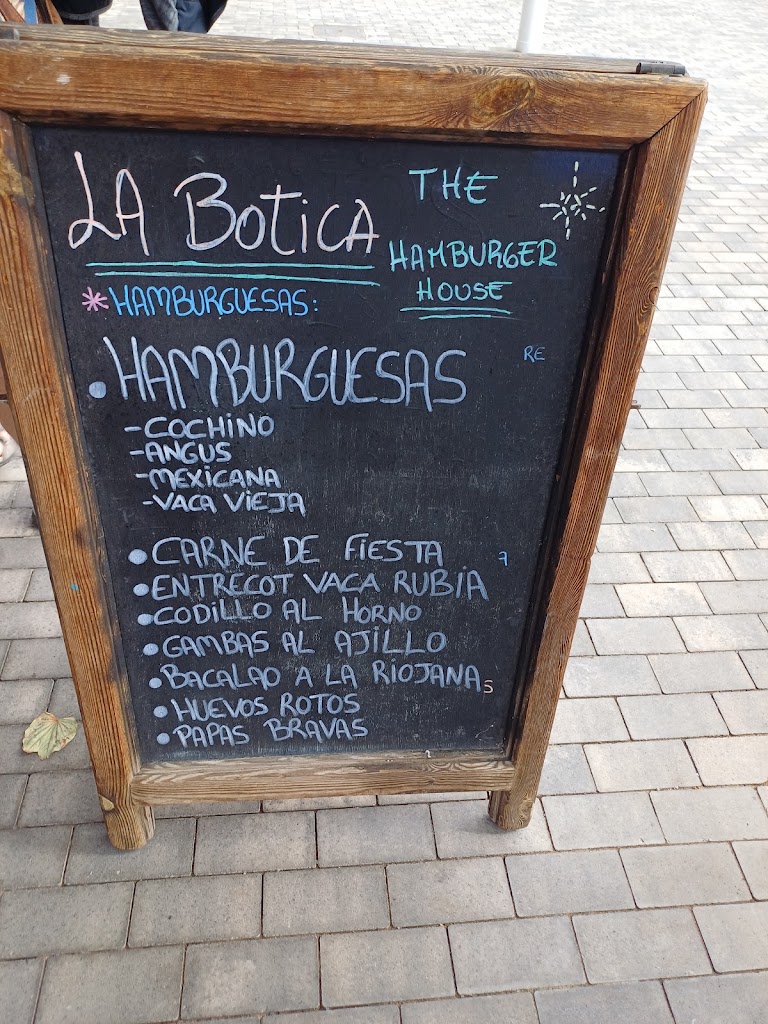 LA BOTICA
THE
HAMBURGER
HOUSE
* HAMBURGUESAS:
• HAMBURGUESAS
RE
- COCHINO
- ANGUS
- MEXICANA
- VACA VIEJA
• CARNE DE FIESTA
• ENTRECOT VACA RUBIA
• CODILLO AL HORNO
• GAMBAS AL AJILLO
• BACALAO A LA RIOJANA
• HUEVOS ROTOS
• PAPAS BRAVAS